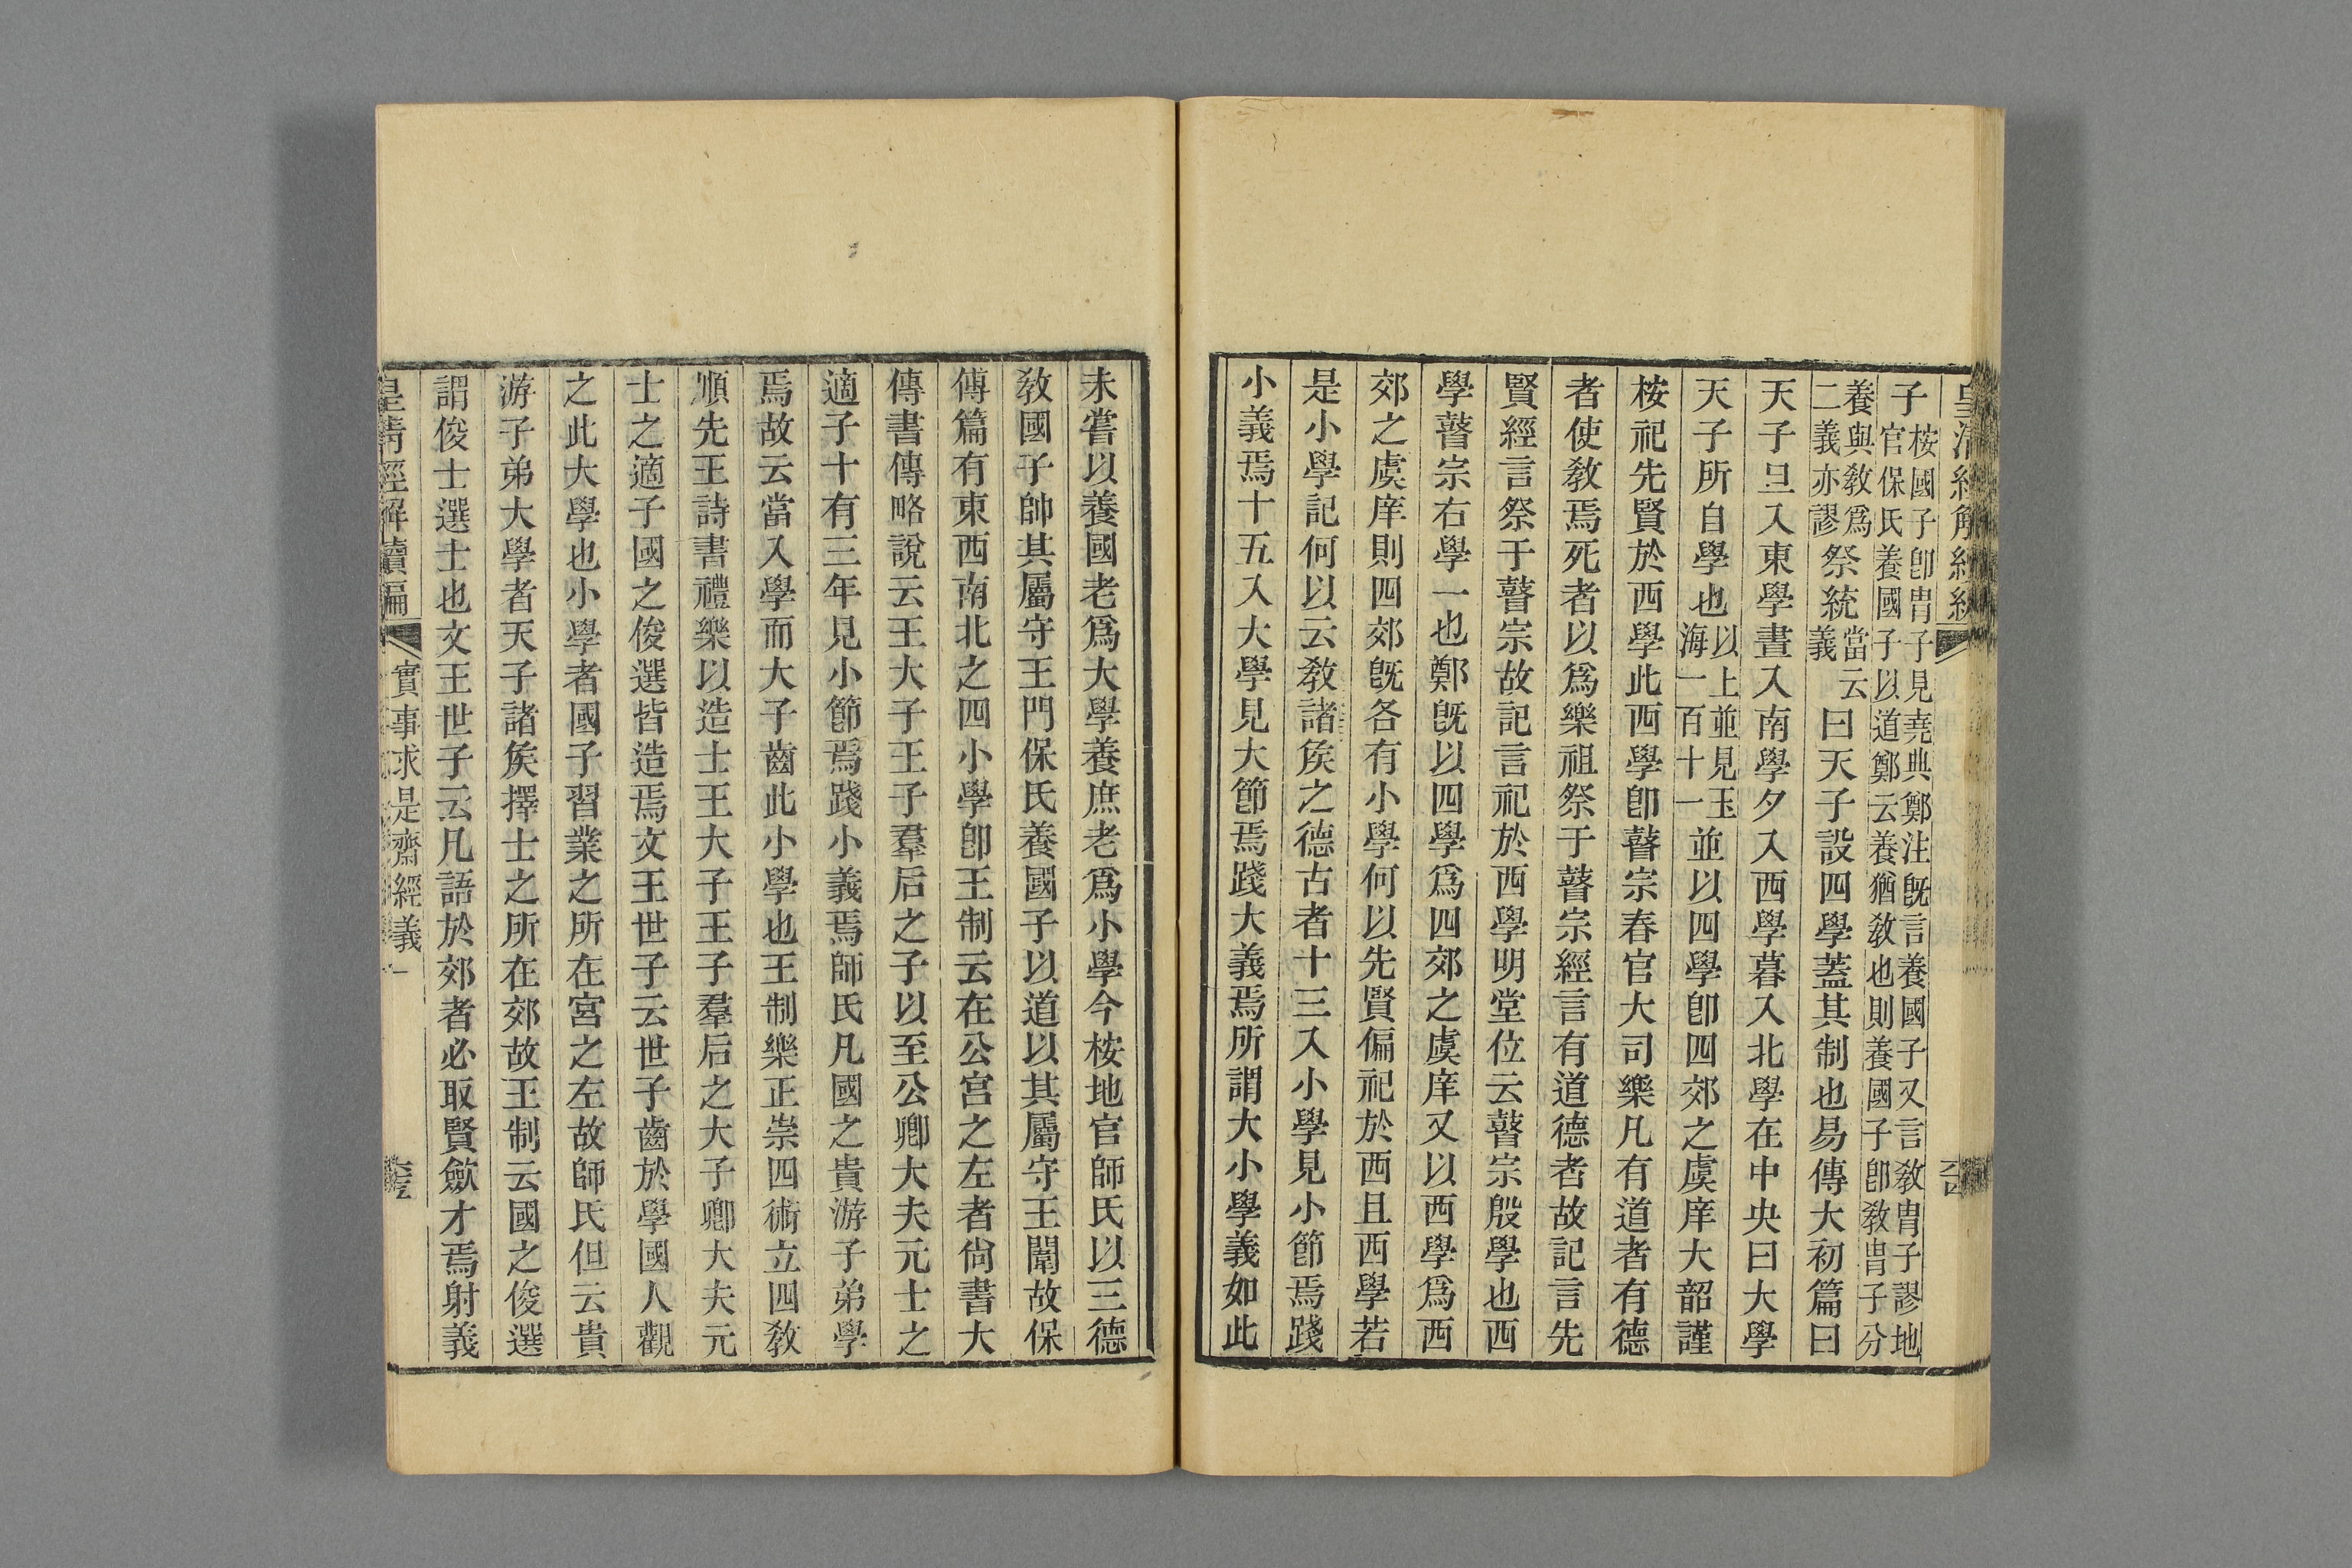 子桉國子卽胄子見堯典鄭注旣言養國子又言敎胄子謬地官保氏養國子以道鄭云養猶敎也則養國子卽敎胄子分
養與敎爲二義亦謬祭統當云義曰天子設四學蓋其制也易傳大初篇曰
天子旦入東學晝入南學夕入西學暮入北學在中央曰大學
天子所自學也以上並見玉海一百十一並以四學卽四郊之虞庠大韶謹
桉祀先賢於西學此西學卽瞽宗春官大司樂凡有道者有德
者使敎焉死者以爲樂祖祭于瞽宗經言有道德者故記言先
賢經言祭于瞽宗故記言祀於西學明堂位云瞽宗殷學也西
學瞽宗右學一也鄭旣以四學爲四郊之虞庠又以西學爲西
郊之虞庠則四郊旣各有小學何以先賢偏祀於西且西學若
是小學記何以云敎諸矦之德古者十三入小學見小節焉踐
小義焉十五入大學見大節焉踐大義焉所謂大小學義如此
未嘗以養國老爲大學養庶老爲小學今桉地官師氏以三德
敎國子帥其屬守王門保氏養國子以道以其屬守王闈故保
傅篇有東西南北之四小學卽王制云在公宮之左者尙書大
傳書傳略說云王大子王子羣后之子以至公卿大夫元士之
適子十有三年見小節焉踐小義焉師氏凡國之貴游子弟學
焉故云當入學而大子齒此小學也王制樂正崇四術立四敎
順先王詩書禮樂以造士王大子王子羣后之大子卿大夫元
士之適子國之俊選皆造焉文王世子云世子齒於學國人觀
之此大學也小學者國子習業之所在宮之左故師氏但云貴
游子弟大學者天子諸矦擇士之所在郊故王制云國之俊選
謂俊士選士也文王世子云凡語於郊者必取賢斂才焉射義
皇清經解續編
實事求是齋經義一